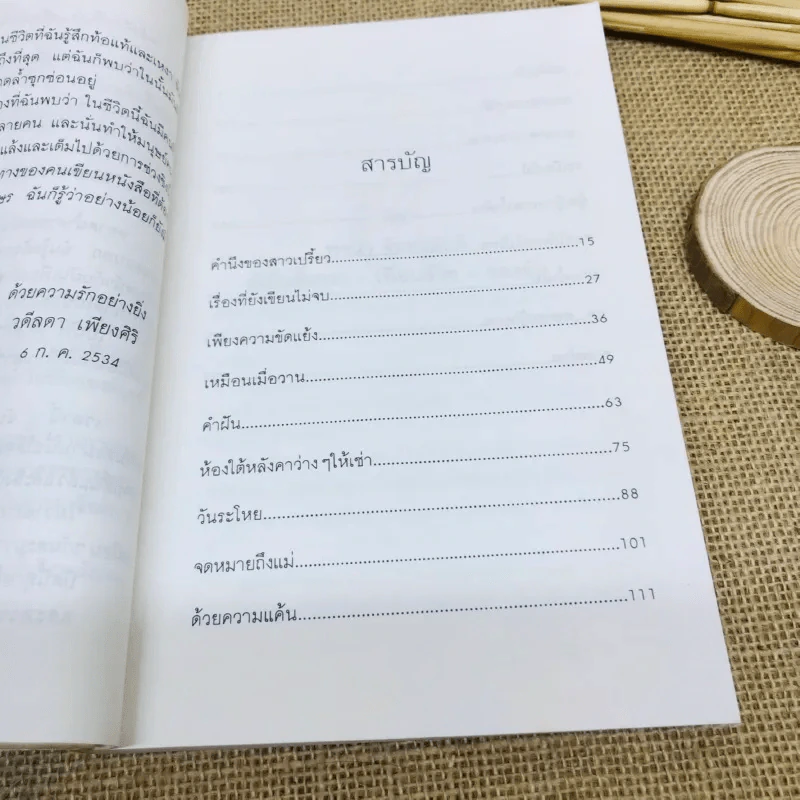 นชีวิตที่ฉันรู้สึกท้อแท้และเหงา
ถึงที่สุด แต่ฉันก็พบว่าในนั้น
ดล้ำซุกซ่อนอยู่
องที่ฉันพบว่า ในชีวิตนี้ฉันมี
ลายคน และนั่นทำให้มนุษย์
แล้งและเต็มไปด้วยการช่วงชิง
ทางของคนเขียนหนังสือที่ต้อง
ษร ฉันก็รู้ว่าอย่างน้อยก็ยัง
ด้วยความรักอย่างยิ่ง
วดีลดา เพียงศิริ
6 ก. ค. 2534
สารบัญ
คำนึงของสาวเปรี้ยว...15
เรื่องที่ยังเขียนไม่จบ...27
เพียงความขัดแย้ง...36
เหมือนเมื่อวาน...49
คำฝัน...63
ห้องใต้หลังคาว่าง ๆให้เช่า...75
วันระโหย...88
จดหมายถึงแม่...101
ด้วยความแค้น...111